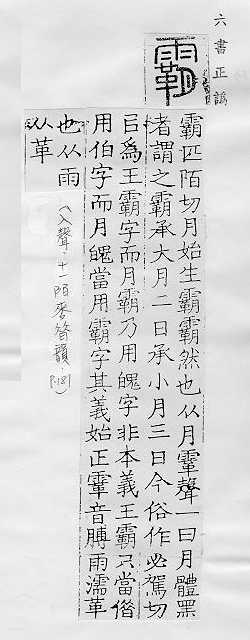 六書正譌
霸
霸匹陌切月始生霸霸然也从月䨣聲一曰月體黑
者謂之霸承大月二日承小月三日今俗作必駕切
㠯爲王霸字而月霸乃用魄字非本義王霸只當借
用伯字而月魄當用霸字其義始正䨣音膊雨濡革
也从雨
从革
(入聲·十一陌麥昔韻, P.181)